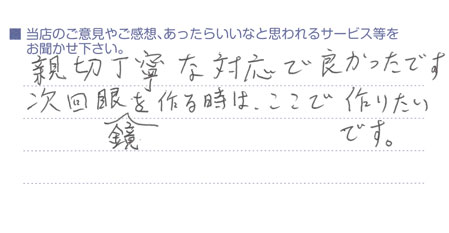 ■ 当店のご意見やご感想、あったらいいなと思われるサービス等を
お聞かせ下さい。
親切丁寧な対応で良かったです
次回眼鏡を作る時は、ここで作りたい
です。